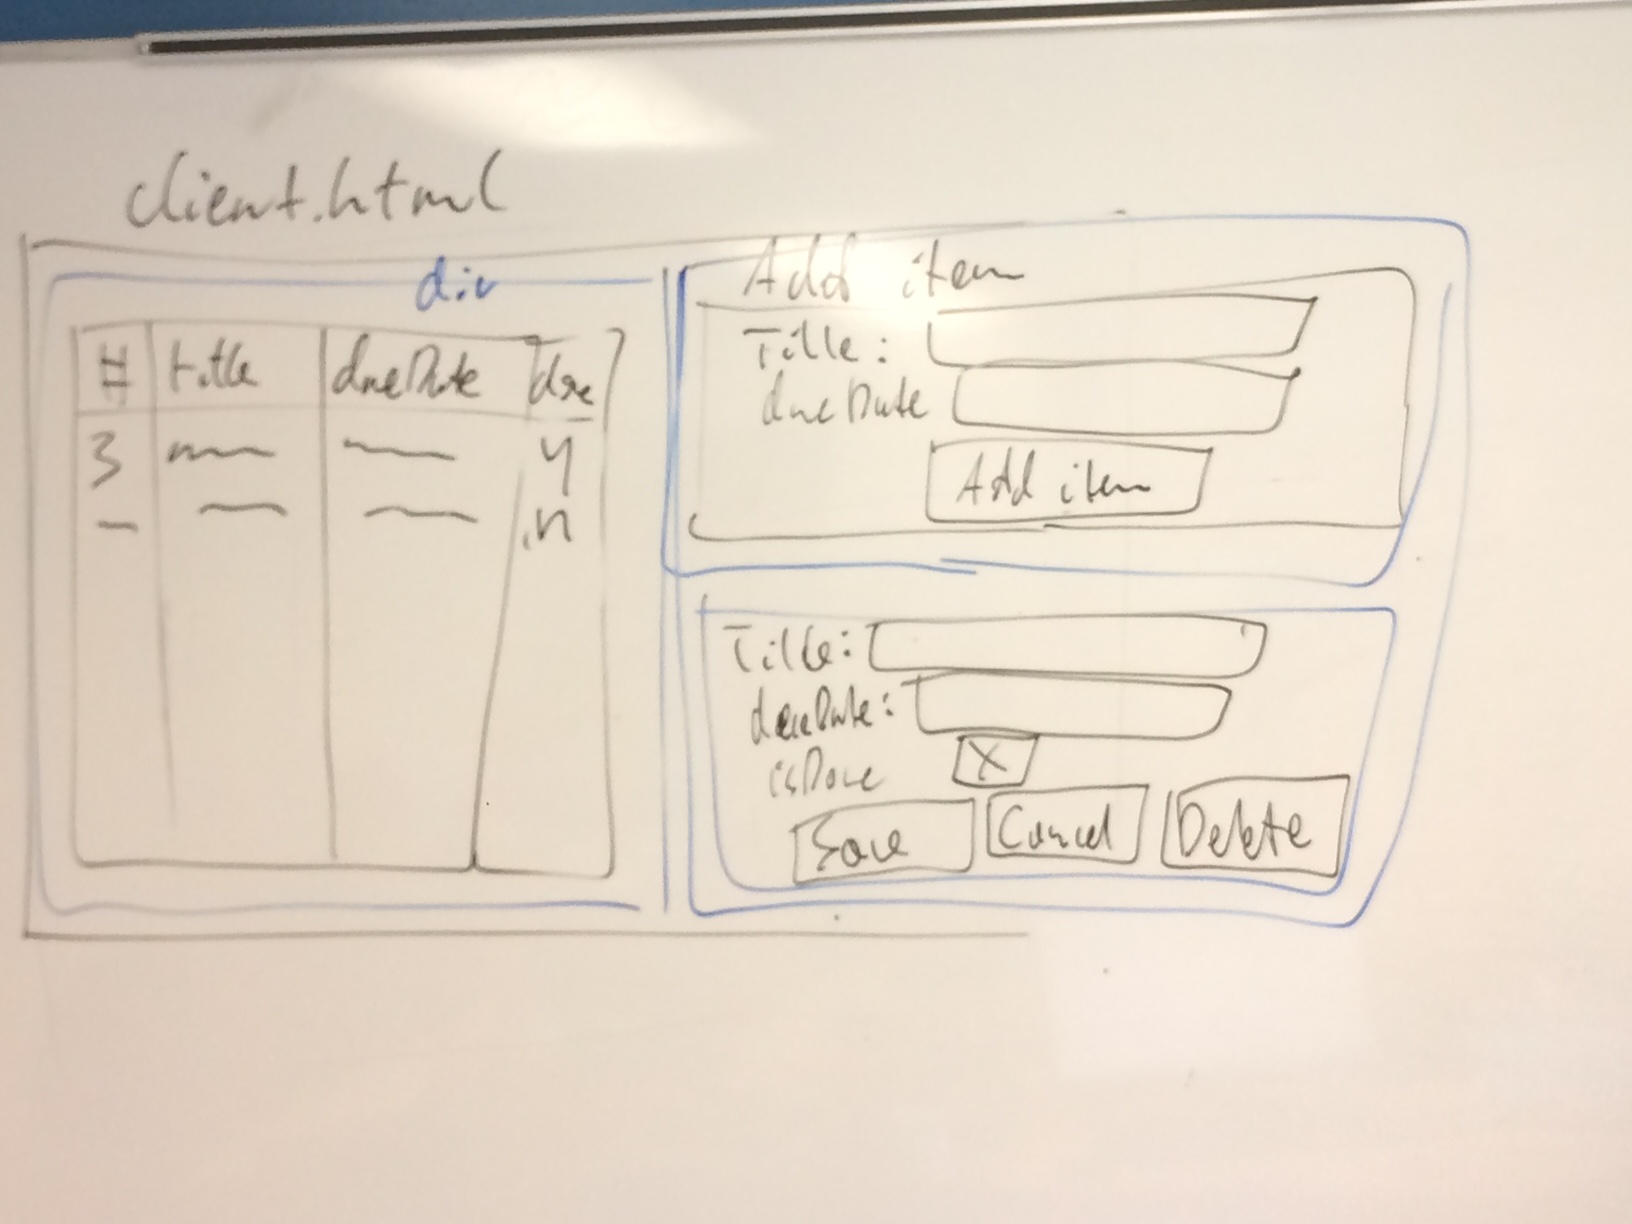 client.html
div
# title dueDate done
3 y
n
Add item
Title:
dueDate
Add item
Title:
dueDate:
isDone X
Save Cancel Delete